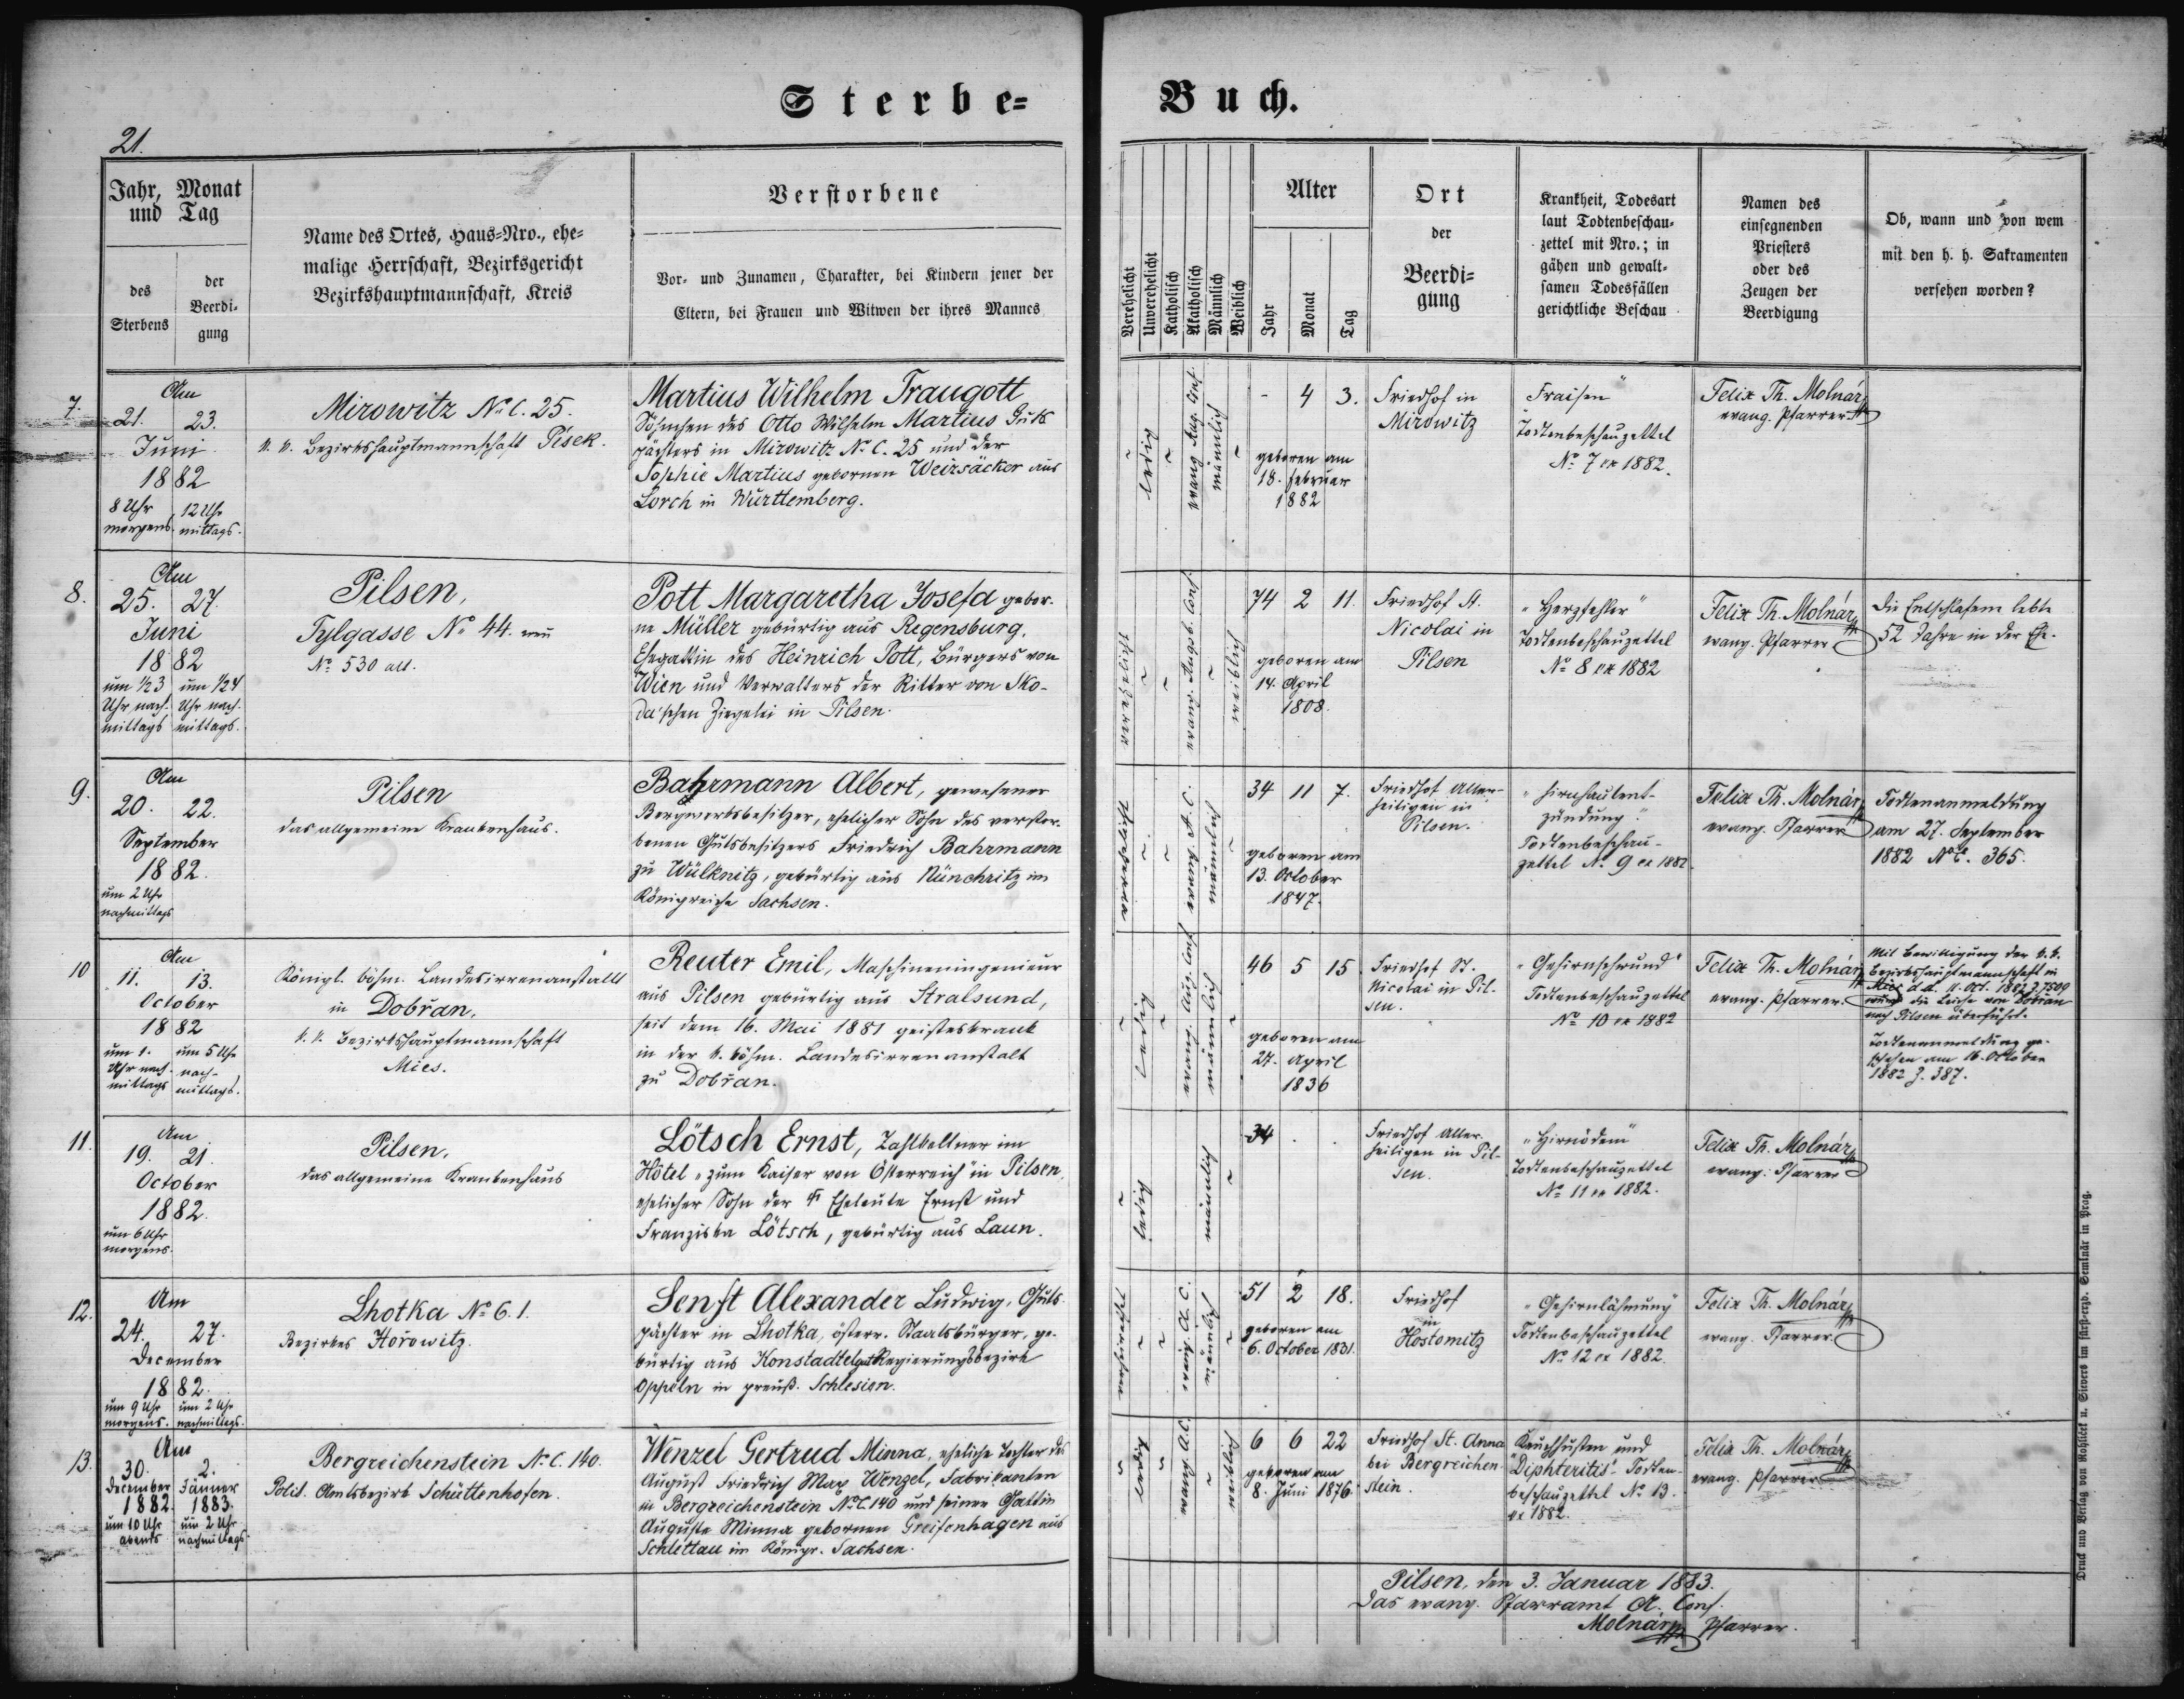 Sterbe-
Buch.
21.
Jahr, Monat
und Tag
des
Sterbens
der
Beerdi-
gung
Name des Ortes, Haus-Nro., ehe-
malige Herrschaft, Bezirksgericht
Bezirkshauptmannschaft, Kreis
Verstorbene
Vor- und Zunamen, Charakter, bei Kindern jener der
Eltern, bei Frauen und Witwen der ihres Mannes
Verehelicht
Unverehelicht
Katholisch
Akatholisch
Männlich
Weiblich
Alter
Jahr
Monat
Tag
Ort
der
Beerdi-
gung
Krankheit, Todesart
laut Todtenbeschau-
zettel mit Nro.; in
gähen und gewalt-
samen Todesfällen
gerichtliche Beschau
Namen des
einsegnenden
Priesters
oder des
Zeugen der
Beerdigung
Ob, wann und von wem
mit den h. h. Sakramenten
versehen worden?
7.
Am
21. 23.
Juni
1882
8 Uhr morgens
12 Uhr mittags.
Mirowitz No C. 25.
k. k. Bezirkshauptmannschaft Pisek.
Martius Wilhelm Traugott
Söhnchen des Otto Wilhelm Martius Guts
pächters in Mirowitz No C. 25 und der
Sophie Martius gebornen Weizsäcker aus
Lorch in Württemberg.
ledig
evang. Aug. Conf.
männlich
- 4 3.
geboren am
18. Februar
1882
Friedhof in
Mirowitz
"Fraisen"
Todtenbeschauzettel
No 7 ex 1882.
Felix Th. Molnár
evang. Pfarrer
8.
Am
25. 27.
Juni
1882
um 1/2 3 Uhr nach-
mittags
um 1/2 4 Uhr nach-
mittags.
Pilsen,
Tylgasse No 44. neu
No 530 alt.
Pott Margaretha Josefa gebor-
ne Müller gebürtig aus Regensburg,
Ehegattin des Heinrich Pott, Bürgers von
Wien und Verwalters der Ritter von Sko-
da'schen Ziegelei in Pilsen.
verehelicht
evang. Augsb. Conf.
weiblich
74 2 11.
geboren am
14. April
1808.
Friedhof St.
Nicolai in
Pilsen
"Herzfehler"
Todtenbeschauzettel
No 8 ex 1882
Felix Th. Molnár
evang. Pfarrer
Die Entschlafene lebte
52 Jahre in der Ehe.
9.
Am
20. 22.
September
1882.
um 2 Uhr
nachmittags
Pilsen
das allgemeine Krankenhaus.
Bahrmann Albert, gewesener
Bergwerksbesitzer, ehelicher Sohn des verstor-
benen Gutsbesitzers Friedrich Bahrmann
zu Wülknitz, gebürtig aus Nünchritz im
Königreiche Sachsen.
evang. A. C.
männlich
34 11 7.
geboren am
13. October
1847.
Friedhof Aller-
heiligen in
Pilsen.
"Hirnhautent-
zündung".
Todtenbeschau-
zettel No 9 ex 1882.
Felix Th. Molnár
evang. Pfarrer
Todtenanmeldung
am 27. September
1882 No E. 365.
10
Am
11. 13.
October
1882
um 1. Uhr nach-
mittags
um 5 Uhr nach-
mittags.
Königl. böhm. Landesirrenanstalt
in Dobřan,
k. k. Bezirkshauptmannschaft
Mies.
Reuter Emil, Maschineningenieur
aus Pilsen gebürtig aus Stralsund,
seit dem 16. Mai 1881 geisteskrank
in der k. böhm. Landesirrenanstalt
zu Dobřan.
ledig
evang. Aug. Conf.
männlich
46 5 15
geboren am
27. April
1836
Friedhof St.
Nicolai in Pil-
sen.
"Gehirnschwund"
Todtenbeschauzettel
No 10 ex 1882
Felix Th. Molnár
evang. Pfarrer.
Mit Bewilligung der k. k.
Bezirkshauptmannschaft in
Mies d. d. 11. Oct. 1882 Z. 7509
wurde die Leiche von Dobřan
nach Pilsen überführt.
Todtenanmeldung ge-
schehen am 16. October
1882 Z. 387.
11.
Am
19. 21.
October
1882.
um 6 Uhr
morgens.
Pilsen,
das allgemeine Krankenhaus
Lötsch Ernst, Zahlkellner im
Hôtel "zum Kaiser von Österreich" in Pilsen,
ehelicher Sohn der Eheleute Ernst und
Franziska Lötsch, gebürtig aus Laun.
ledig
männlich
34 . .
Friedhof Aller-
heiligen in Pil-
sen.
"Hirnödem"
Todtenbeschauzettel
No 11 ex 1882.
Felix Th. Molnár
evang. Pfarrer
12.
Am
24. 27.
December
1882.
um 9 Uhr
morgens.
um 2 Uhr
nachmittags.
Lhotka No 6 1.
Bezirkes Hořowitz.
Senft Alexander Ludwig, Guts-
pächter in Lhotka, österr. Staatsbürger, ge-
bürtig aus Konstadtelguth Regierungsbezirk
Oppeln in preuß. Schlesien.
evang. A. C.
männlich
51 2 18.
geboren am
6. October 1831.
Friedhof
in
Hostomitz
"Gehirnlähmung"
Todtenbeschauzettel
No 12 ex 1882.
Felix Th. Molnár
evang. Pfarrer.
13.
Am
30. 2.
December Jänner
1882. 1883.
um 10 Uhr
abends
um 2 Uhr
nachmittags
Bergreichenstein No C. 140.
Polit. Amtsbezirk Schüttenhofen.
Wenzel Gertrud Minna, eheliche Tochter des
August Friedrich Max Wenzel, Fabrikanten
in Bergreichenstein No C. 140 und seiner Gattin
Auguste Minna gebornen Greifenhagen aus
Schlettau im Königr. Sachsen.
ledig
evang. A. C.
weiblich
6 6 22
geboren am
8. Juni 1876.
Friedhof St. Anna
bei Bergreichen-
stein.
Keuchhusten und
"Diphteritis"- Todten-
beschauzettel No 13.
ex 1882.
Felix Th. Molnár
evang. Pfarrer
Pilsen, den 3. Januar 1883.
Das evang. Pfarramt A. Conf.
Molnár Pfarrer.
Druck und Verlag von Rohliček u. Sievers im fürst-erzb. Seminär in Prag.